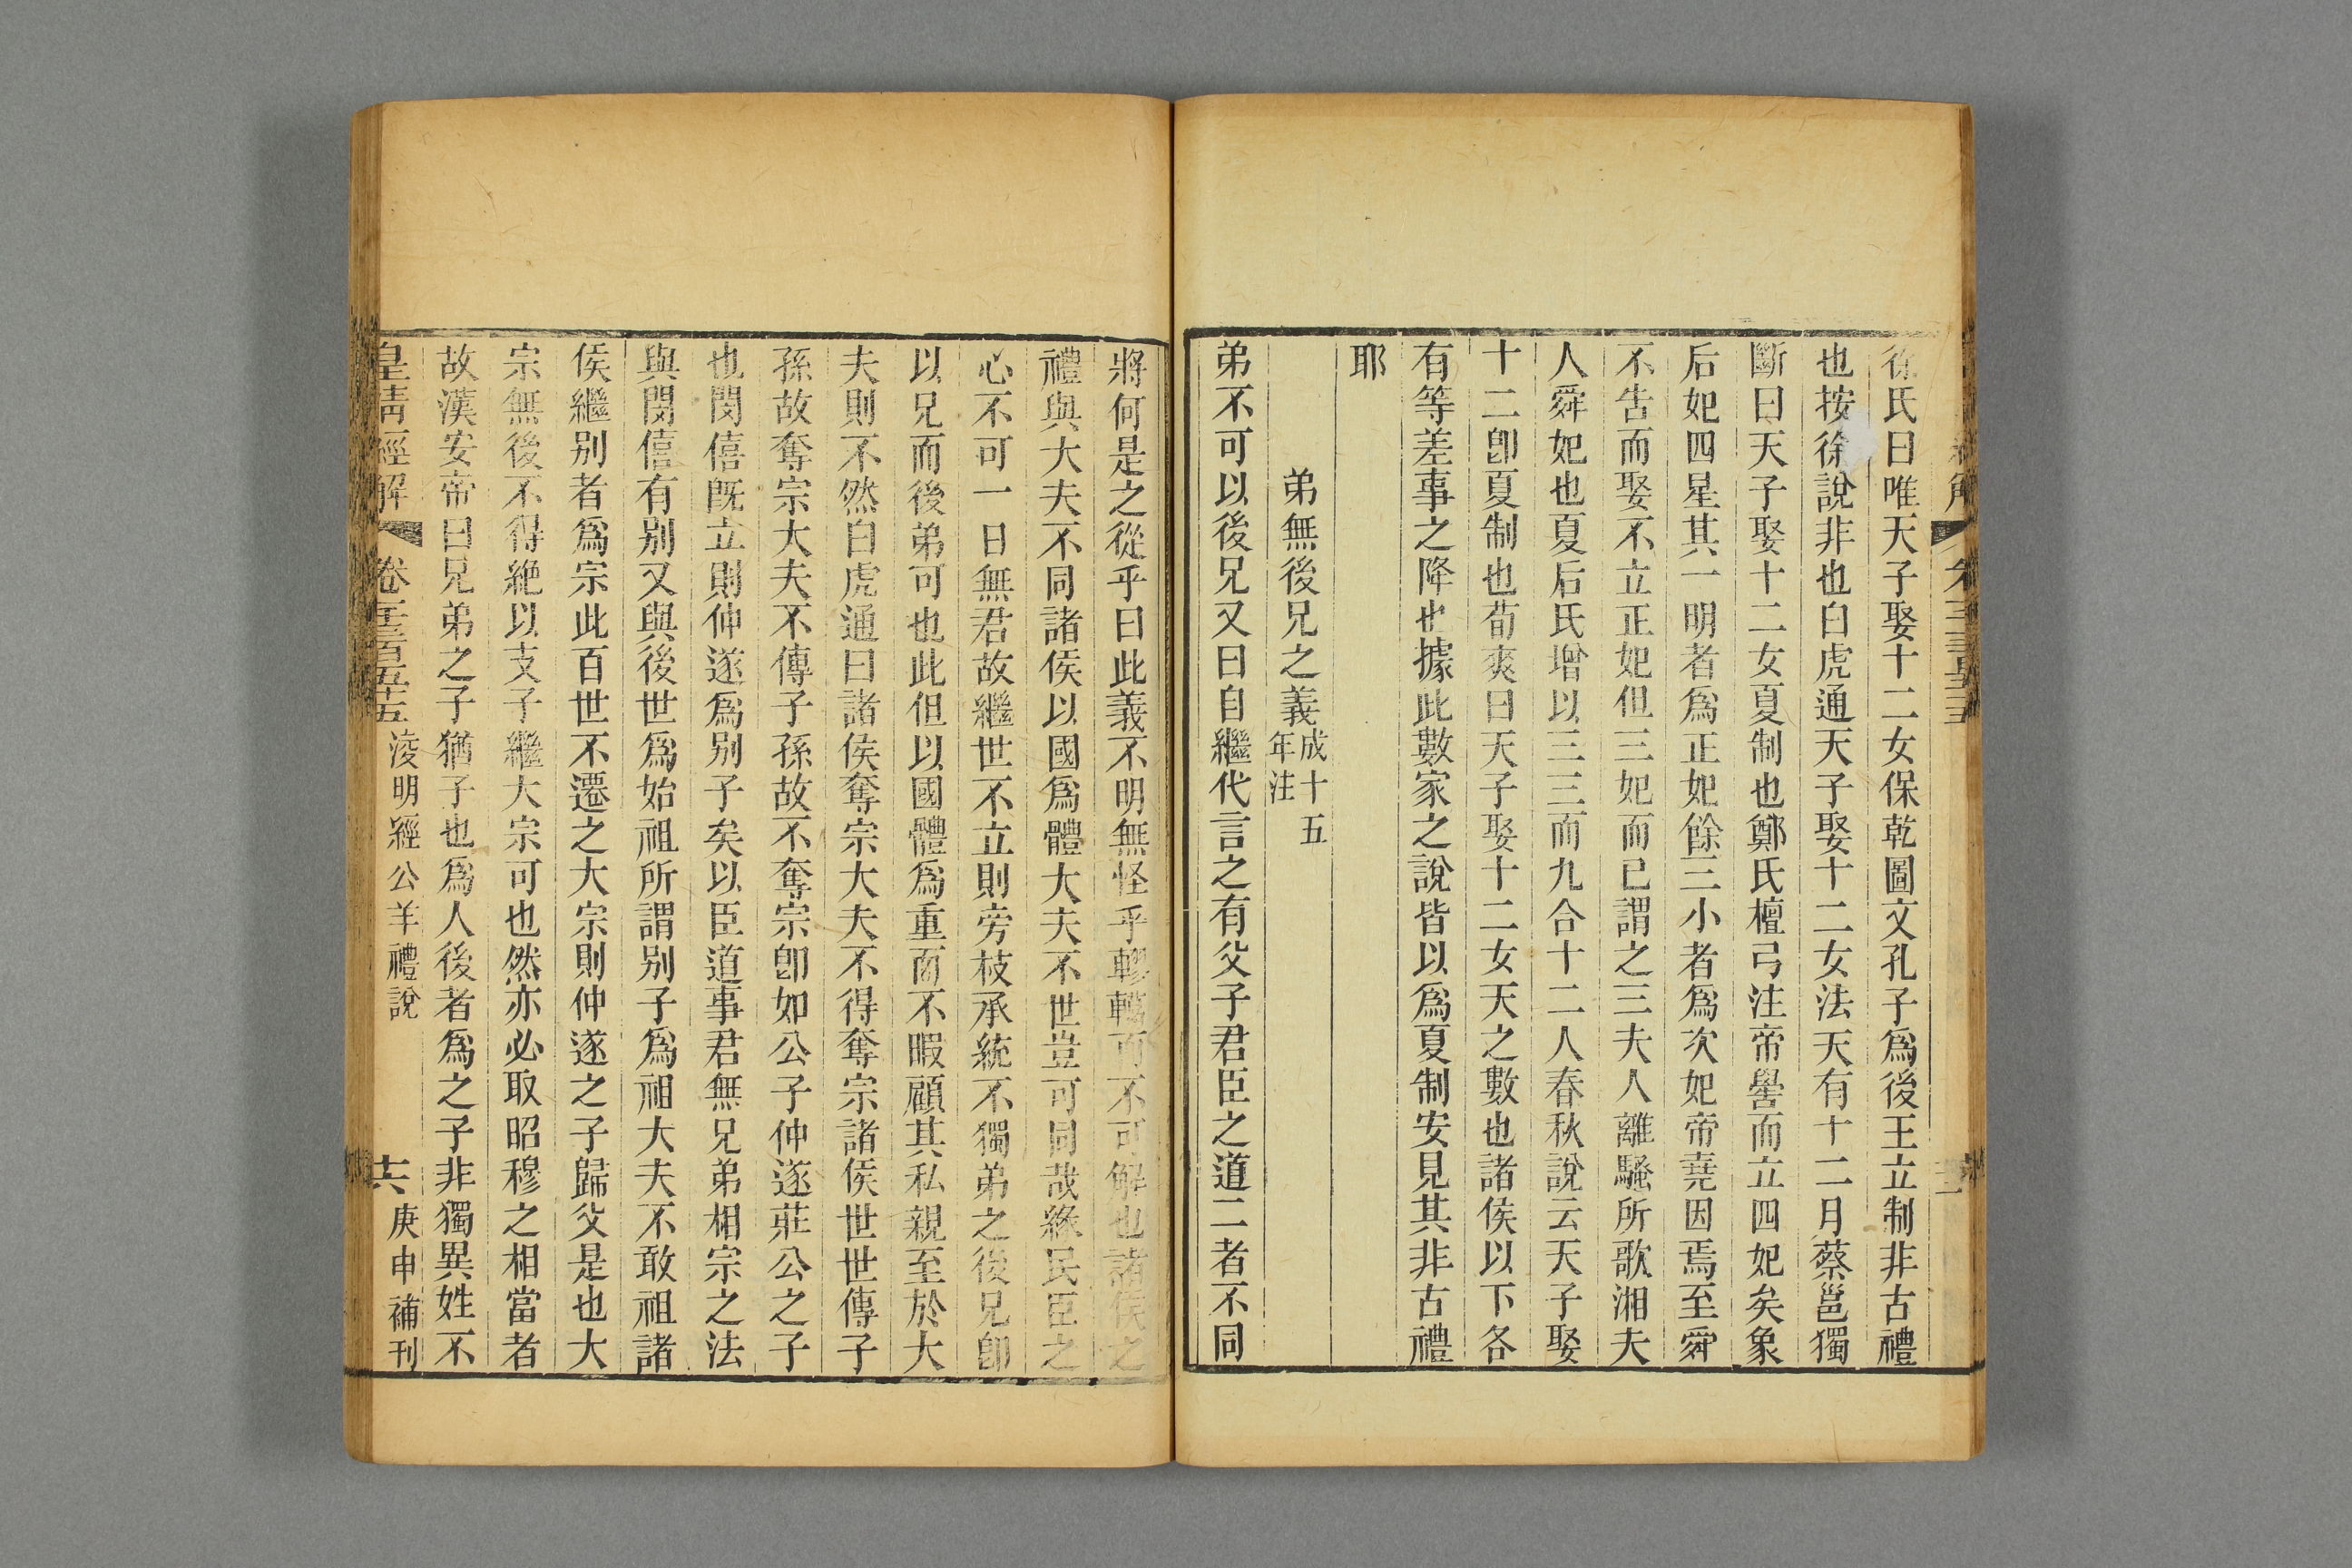 徐氏曰唯天子娶十二女保乾圖文孔子爲後王立制非古禮
也按徐說非也白虎通天子娶十二女法天有十二月蔡邕獨
斷曰天子娶十二女夏制也鄭氏檀弓注帝嚳而立四妃矣象
后妃四星其一明者爲正妃餘三小者爲次妃帝堯因焉至舜
不告而娶不立正妃但三妃而已謂之三夫人離騷所歌湘夫
人舜妃也夏后氏增以三三而九合十二人春秋說云天子娶
十二卽夏制也荀爽曰天子娶十二女天之數也諸侯以下各
有等差事之降也據此數家之說皆以爲夏制安見其非古禮
耶
弟無後兄之義成十五年注
弟不可以後兄又曰自繼代言之有父子君臣之道二者不同
將何是之從乎曰此義不明無怪乎轇轕而不可解也諸侯之
禮與大夫不同諸侯以國爲體大夫不世豈可同哉緣民臣之
心不可一日無君故繼世不立則旁枝承統不獨弟之後兄卽
以兄而後弟可也此但以國體爲重而不暇顧其私親至於大
夫則不然白虎通曰諸侯奪宗大夫不得奪宗諸侯世世傳子
孫故奪宗大夫不傳子孫故不奪宗卽如公子仲遂莊公之子
也閔僖旣立則仲遂爲別子矣以臣道事君無兄弟相宗之法
與閔僖有別又與後世爲始祖所謂別子爲祖大夫不敢祖諸
侯繼別者爲宗此百世不遷之大宗則仲遂之子歸父是也大
宗無後不得絶以支子繼大宗可也然亦必取昭穆之相當者
故漢安帝曰兄弟之子猶子也爲人後者爲之子非獨異姓不
皇淸經解 卷一千三百五十五 淩明經公羊禮說 十六 庚申補刊